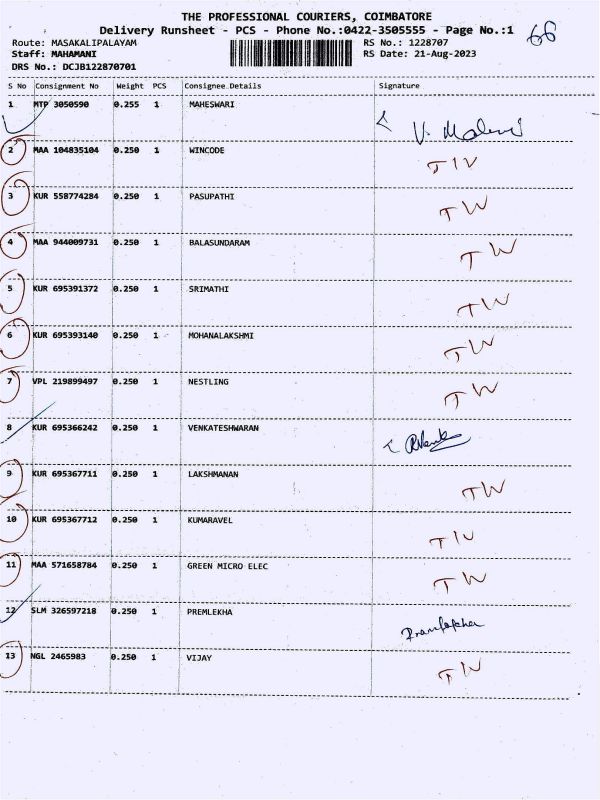 THE PROFESSIONAL COURIERS, COIMBATORE
Delivery Runsheet - PCS - Phone No.:0422-3505555 - Page No.:1
66
Route: MASAKALIPALAYAM RS No.: 1228707
Staff: MAHAMANI RS Date: 21-Aug-2023
DRS No.: DCJB122870701
S No Consignment No Weight PCS Consignee Details Signature
1 MTP 3050590 0.255 1 MAHESWARI
2 MAA 104835104 0.250 1 WINCODE TW
3 KUR 558774284 0.250 1 PASUPATHI TW
4 MAA 944009731 0.250 1 BALASUNDARAM TW
5 KUR 695391372 0.250 1 SRIMATHI TW
6 KUR 695393140 0.250 1 MOHANALAKSHMI TW
7 VPL 219899497 0.250 1 NESTLING TW
8 KUR 695366242 0.250 1 VENKATESHWARAN
9 KUR 695367711 0.250 1 LAKSHMANAN TW
10 KUR 695367712 0.250 1 KUMARAVEL TW
11 MAA 571658784 0.250 1 GREEN MICRO ELEC TW
12 SLM 326597218 0.250 1 PREMLEKHA
13 NGL 2465983 0.250 1 VIJAY TW